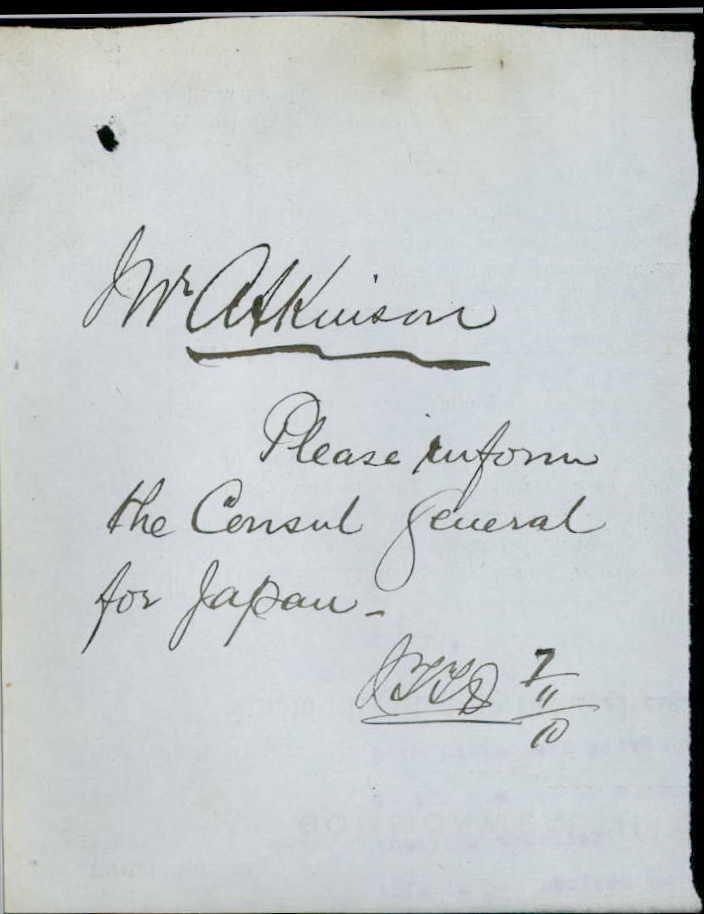 Mr Atkinson
Please inform
the Consul General
for Japan -
7/11/10